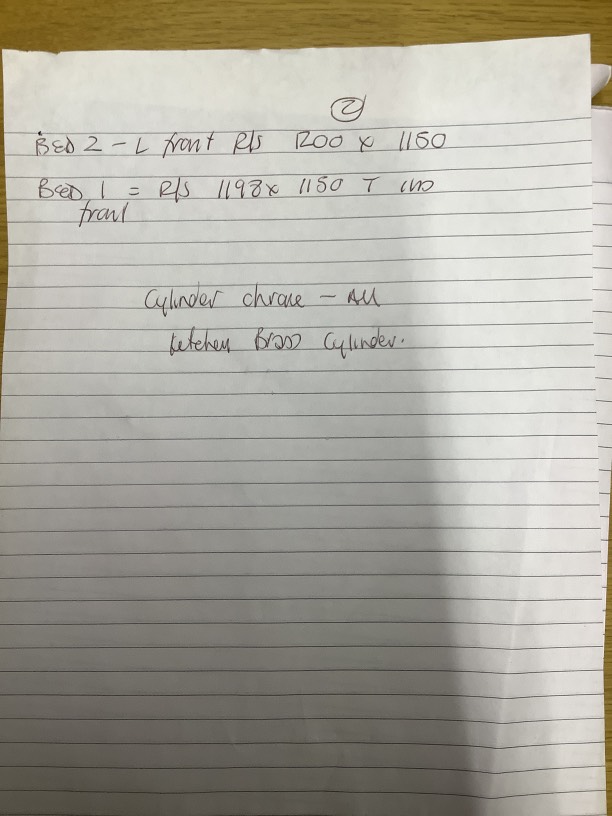 2
BED 2 - L front R/s 1200 x 1150
BED 1 = R/s 1198 x 1150 T
front
Cylinder chrome - All
kitchen Brass Cylinder.